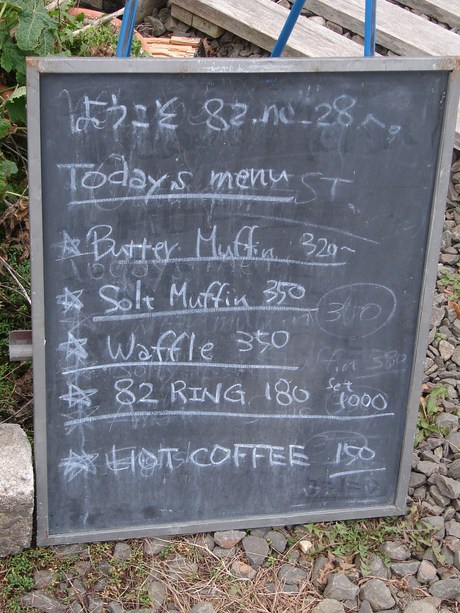 ようこそ 82 no-28へ。
Today,s menu
☆ Butter Muffin 320~
☆ Solt Muffin 350
☆ Waffle 350
☆ 82 RING 180 Set 1000
☆ HOT COFFEE 150